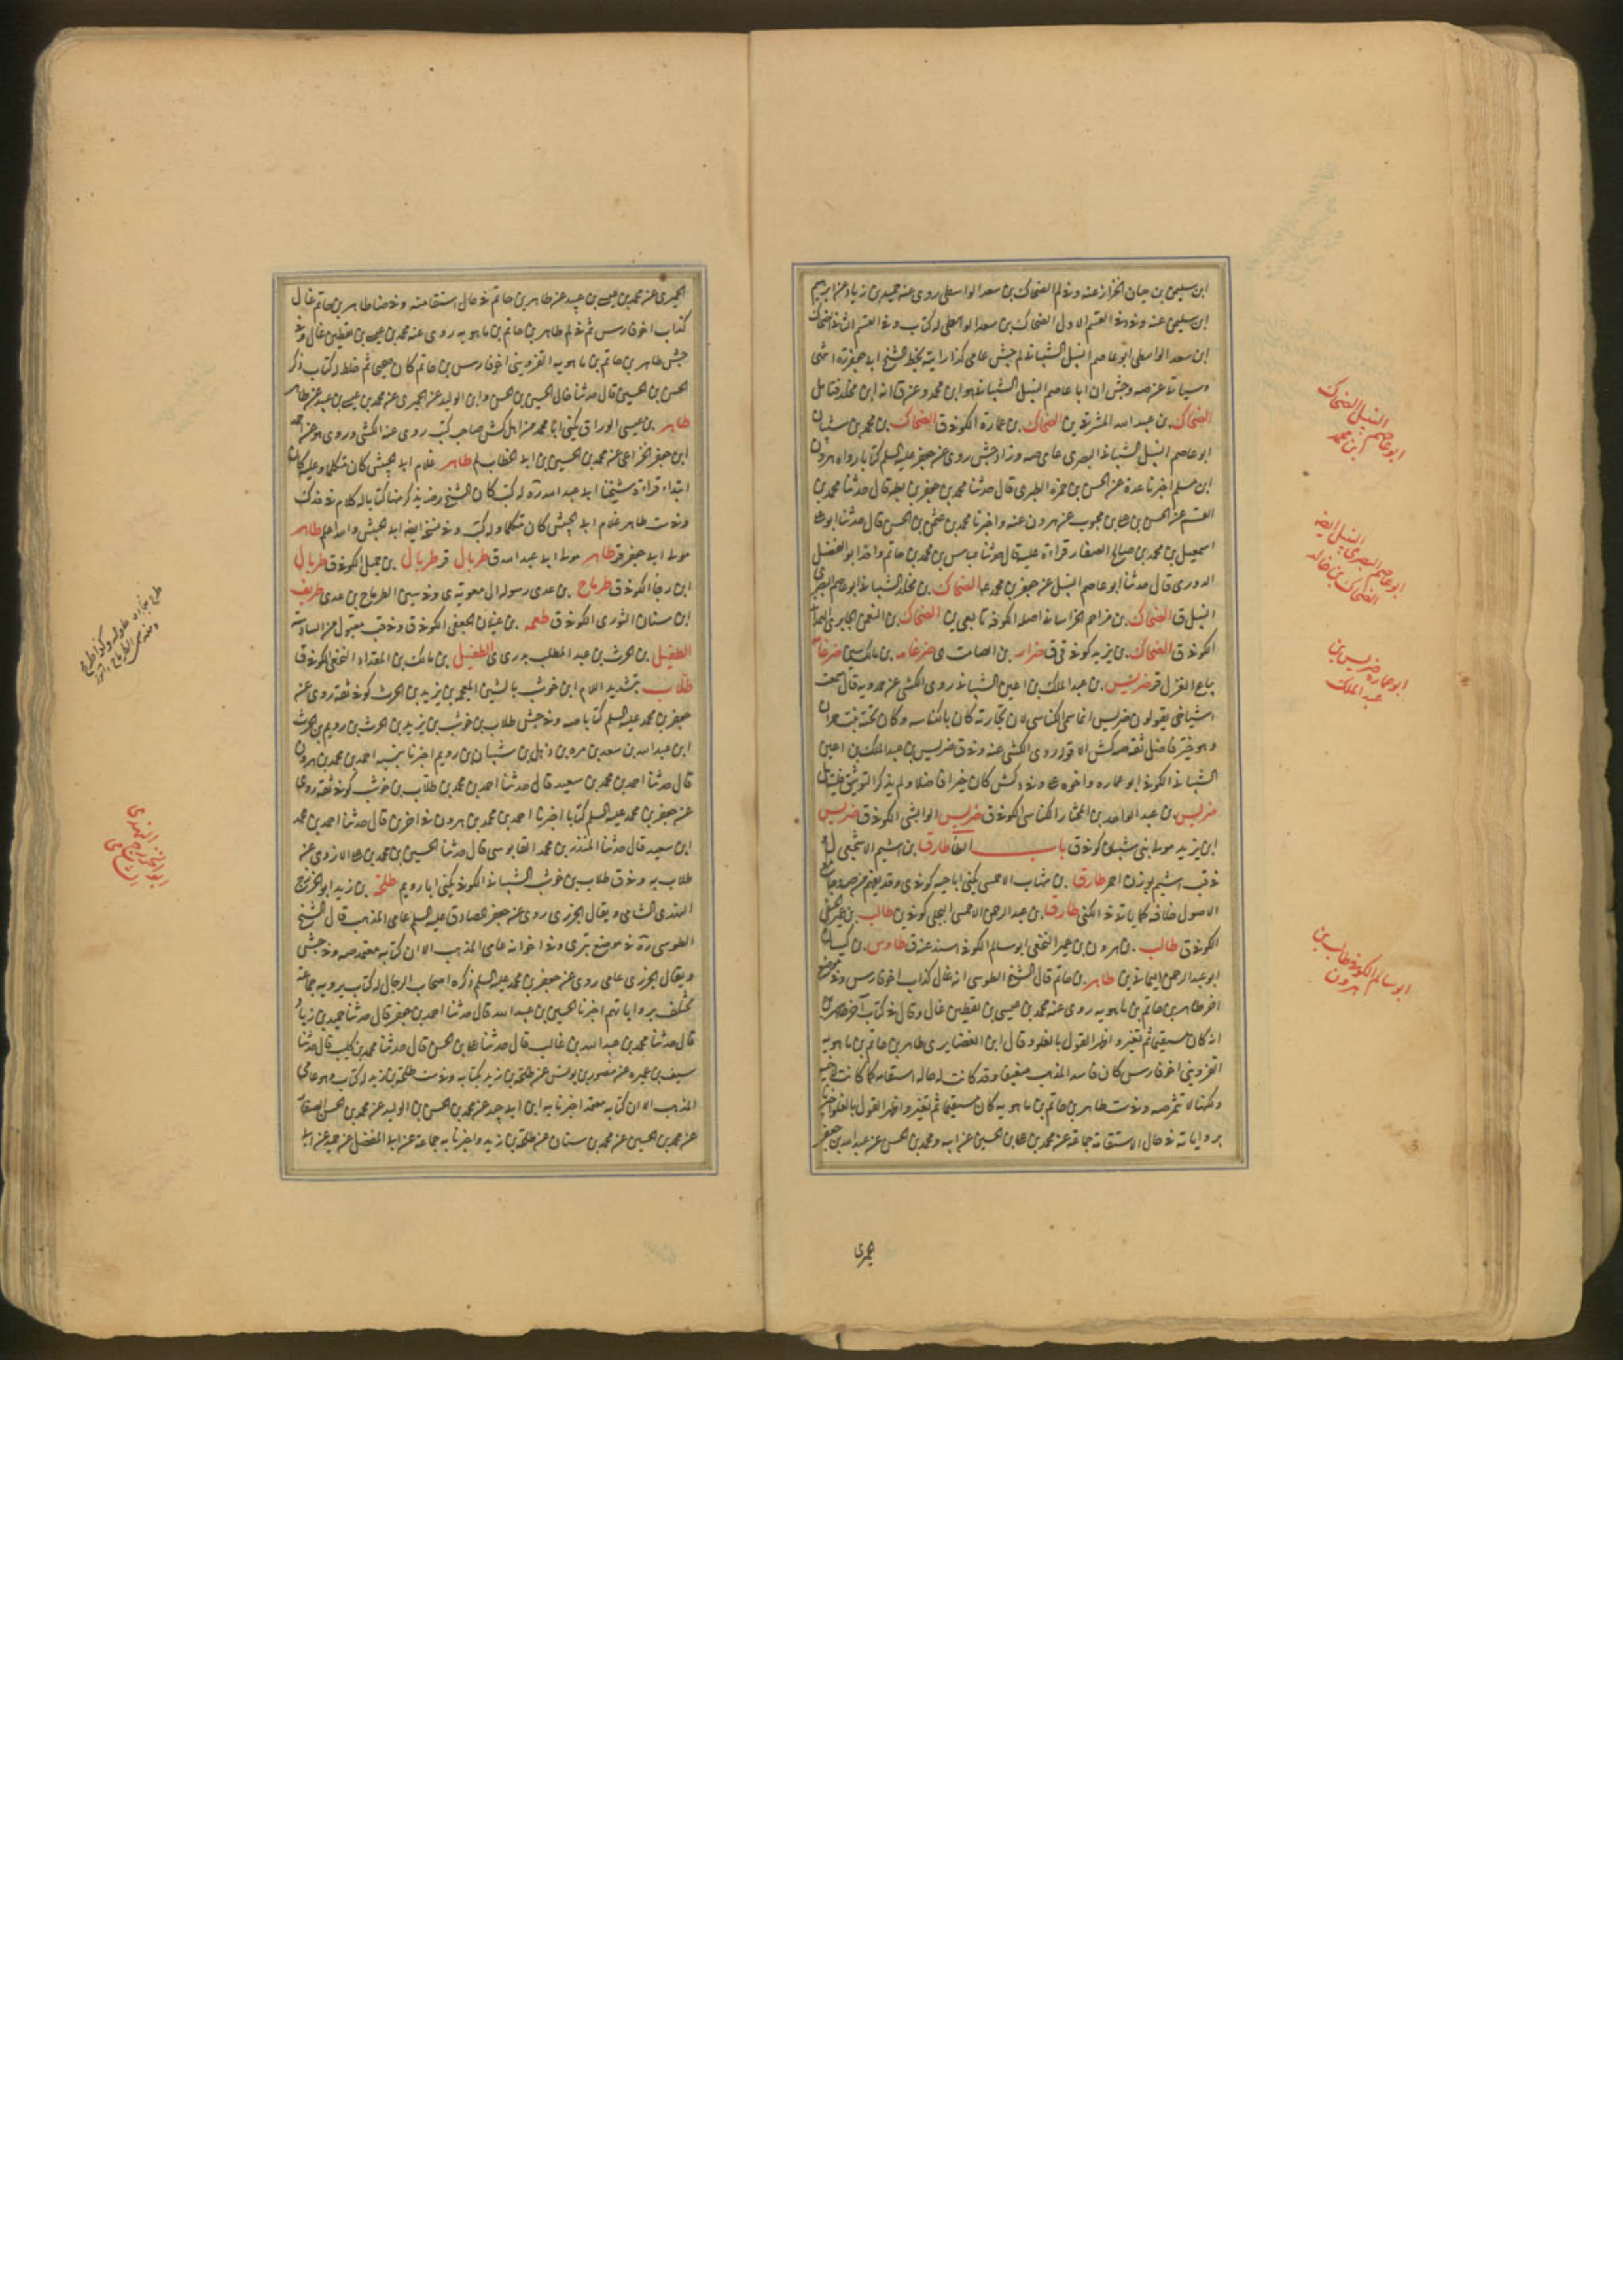 ابن سليمن بن حيان الخزاز عنه وفي لم الضحاك بن سعد الواسطي روى عنه حميد بن زياد عن ابرهيم
ابن سليمن عنه وفي القسم الاول الضحاك بن سعد الواسطي له كتاب وفي القسم الثاني الضحاك
ابن سعد الواسطي ابو عاصم النبيل الشيباني لم جش عامي كذا رايته بخط الشيخ ابي جعفر ره انتهى
وسياتي عن صه وجش ان ابا عاصم النبيل الشيباني هو ابن محمد وعن ق انه ابن مخلد فتامل
الضحاك بن عبد الله المشرقي ين الضحاك بن عمارة الكوفي ق الضحاك بن محمد بن شيبان
ابو عاصم النبيل الشيباني البصري عامي صه وزاد جش روى عن جعفر عليه السلم كتابا رواه هرون
ابن مسلم اخبرنا عدة عن الحسن بن حمزة الطبري قال حدثنا محمد بن جعفر بن بطه قال حدثنا محمد بن
القسم عن الحسن بن علي بن محبوب عن هرون عنه واخبرنا محمد بن عثمن بن الحسن قال حدثنا ابو علي
اسمعيل بن محمد بن صالح الصفار قراءة عليه قال حدثنا عباس بن محمد بن حاتم واقد ابو الفضل
الدوري قال حدثنا ابو عاصم النبيل عن جعفر بن محمد عليه الضحاك بن مخلد الشيباني ابو عاصم البصري
النبيل ق الضحاك بن مزاحم الخراساني اصله الكوفة تابعي ين الضحاك بن النعمن الجابري الهمداني
الكوفي ق الضحاك بن يزيد كوفي ق ضرار بن الصامت ي ضرغامه بن مالك سين ضرغام
بياع الغزل قر ضريس بن عبد الملك بن اعين الشيباني روى الكشي عن حمدويه قال سمعت
اشياخي يقولون ضريس انما سمي الكناسي لان تجارته كان بالكناسه وكان تحته بنت حمران
وهو خير فاضل ثقة صه كش الا قوله روى الكشي عنه وفي ق ضريس بن عبد الملك بن اعين
الشيباني الكوفي ابو عماره واخوه علي وفي د كش كان خيرا فاضلا ولم يذكر التوثيق فليتامل
ضريس بن عبد الواحد بن المختار الكناسي الكوفي ق ضريس الوابشي الكوفي ق ضريس
ابن يزيد مولى بني شيبان كوفي ق باب الطاء طارق بن اشيم الاشجعي ل
في قب اشيم بوزن احمر طارق بن شهاب الاحمسي يكنى ابا حيه كوفي ي وقد يفهم من صه وجامع
الاصول خلافه كما ياتي في الكنى طارق بن عبد الرحمن الاحمسي البجلي كوفي ين طالب بن عمير الحنفي
الكوفي ق طالب بن هرون بن عمير النخعي ابو سالم الكوفي اسند عنه ق طاوس بن كيسان
ابو عبد الرحمن اليماني ين طاهر بن حاتم قال الشيخ الطوسي انه غال كذاب اخو فارس وفي موضع
اخر طاهر بن حاتم بن ماهويه روى عنه محمد بن عيسى بن يقطين غال وقال في كتاب آخر طاهر بن
انه كان مستقيما ثم تغير واظهر القول بالغلو وقال ابن الغضايري طاهر بن حاتم بن ماهويه
القزويني اخو فارس كان فاسد المذهب ضعيفا وقد كانت له حاله استقامه كما كانت لاخيه
ولكنها لا تثمر صه وفي ست طاهر بن حاتم بن ماهويه كان مستقيما ثم تغير واظهر القول بالغلو اخبرنا
برواياته في حال الاستقامة جماعة عن محمد بن علي بن الحسين عن ابيه ومحمد بن الحسن عن عبد الله بن جعفر
حميري
النبيل الضحاك
ابو عاصم بن محمد
النبيل ايضه
ابو عاصم البصري
الضحاك بن خالد
ابو عماره ضريس بن
عبد الملك
ابو سالم الكوفي طالب بن
هرون
الحميري عن محمد بن عيسى بن عبيد عن طاهر بن حاتم في حال استقامته وفي ضا طاهر بن حاتم غال
كذاب اخو فارس ثم في لم طاهر بن حاتم بن ماهويه روى عنه محمد بن عيسى بن يقطين غال وفي
جش طاهر بن حاتم بن ماهويه القزويني اخو فارس بن حاتم كان صحيحا ثم خلط له كتاب ذكر
الحسن بن الحسين قال حدثنا خالي الحسين بن الحسن وابن الوليد عن الحميري عن محمد بن عيسى بن عبيد عن طاهر
طاهر بن عيسى الوراق يكنى ابا محمد من اهل كش صاحب كتب روى عنه الكشي وروى هو عن
ابن جعفر الخزاعي عن محمد بن الحسين بن ابي الخطاب لم طاهر غلام ابي الجيش كان متكلما وعليه كان
ابتداء قراءة شيخنا ابي عبد الله ره له كتب كان الشيخ رضي يذكر منها كتابا له كلام في فدك
وفي ست طاهر غلام ابي الجيش كان متكلما وله كتب وفي نسخة ايضه ابي الجيش والله اعلم طاهر
مولى ابي جعفر قر طاهر مولى ابي عبد الله ق طربال قر طربال بن جميل الكوفي ق طربال
ابن رجا الكوفي ق طرماح بن عدي رسوله الى معوية ي وفي سين الطرماح بن عدي طريف
ابن سنان الثوري الكوفي ق طعمه بن غيلان الجعفي الكوفي ق وفي قب مقبول من السادسة
الطفيل بن الحرث بن عبد المطلب بدري ي الطفيل بن مالك بن المقداد النخعي الكوفي ق
طلاب بتشديد اللام ابن حوشب بالشين المعجمه بن يزيد بن الحرث كوفي ثقة روى عن
جعفر بن محمد عليه السلم كتابا صه وفي جش طلاب بن حوشب بن يزيد بن الحرث بن رويم بن الحرث
ابن عبد الله بن سعد بن مره بن ذهل بن شيبان بن رويم اخبرنا بنسبه احمد بن محمد بن هرون
قال حدثنا احمد بن محمد بن سعيد قال حدثنا احمد بن محمد بن طلاب بن حوشب كوفي ثقة روى
عن جعفر بن محمد عليه السلم كتابا اخبرنا احمد بن محمد بن هرون في اخرين قال حدثنا احمد بن محمد
ابن سعيد قال حدثنا المنذر بن محمد القابوسي قال حدثنا الحسين بن محمد بن علي الازدي عن
طلاب به وفي ق طلاب بن حوشب الشيباني الكوفي يكنى ابا رويم طلحة بن زيد ابو الخزرج
النهدي الشامي ويقال الخزري روى عن جعفر الصادق عليه السلم عامي المذهب قال الشيخ
الطوسي ره في موضع بتري وفي اخر انه عامي المذهب الا ان كتابه معتمد صه وفي جش
ويقال الجزري عامي روى عن جعفر بن محمد عليه السلم ذكره اصحاب الرجال له كتاب يرويه جماعة
تختلف برواياتهم اخبرنا الحسين بن عبيد الله قال حدثنا احمد بن جعفر قال حدثنا حميد بن زياد
قال حدثنا محمد بن عبد الله بن غالب قال حدثنا علي بن الحسن قال حدثنا محمد بن كليب قال حدثنا
سيف بن عميره عن منصور بن يونس عن طلحة بن زيد بكتابه وفي ست طلحة بن زيد له كتاب وهو عامي
المذهب الا ان كتابه معتمد اخبرنا به ابن ابي جيد عن محمد بن الحسن بن الوليد عن محمد بن الحسن الصفار
عن محمد بن الحسين عن محمد بن سنان عن طلحة بن زيد واخبرنا به جماعة عن ابي المفضل عن حميد عن ابي